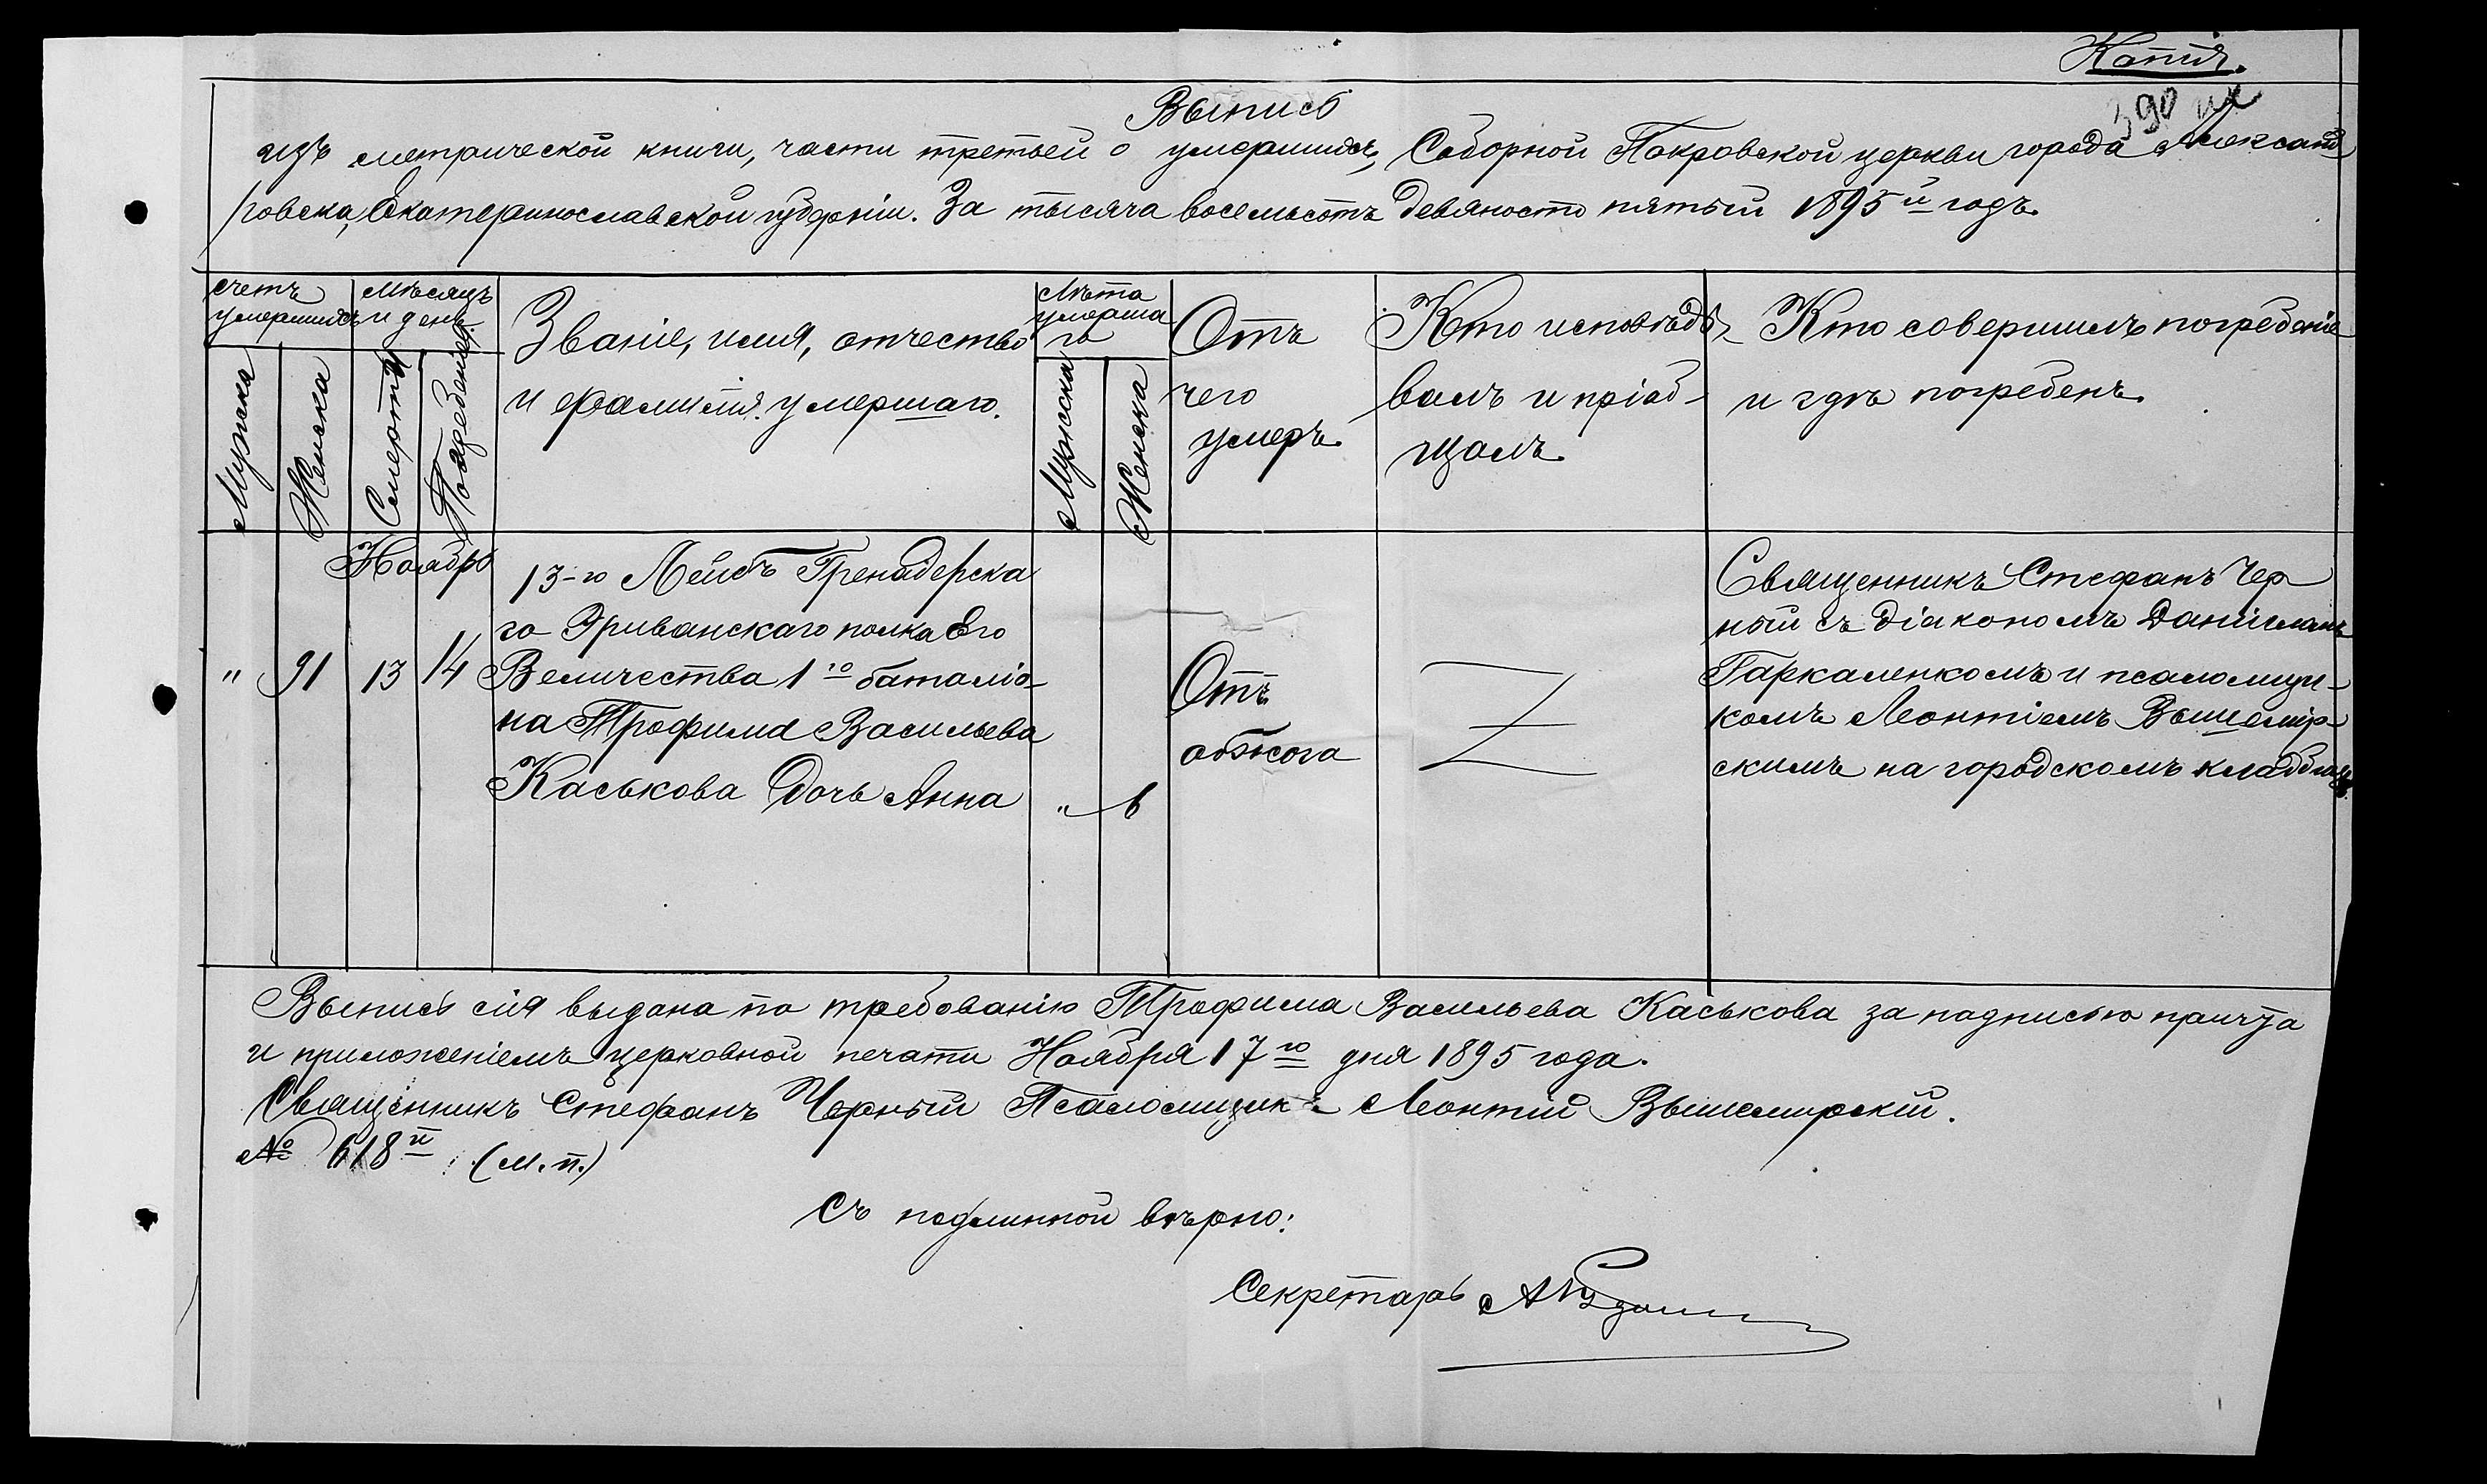 Копія.
390
Выпись
изъ метрической книги, части третьей о умершихъ, Соборной Покровской церкви города Александ
ровска, Екатеринославской губерніи. За тысяча восемьсотъ девяносто пятый 1895й годъ.
счетъ умершихъ
Мужска
Женска
Мѣсяцъ и день
Смерти
Погребенія
Званіе, имя, отчество
и фамилія умершаго.
Лѣта
умерша
го
Мужска
Женска
Отъ
чего
умеръ.
Кто исповѣды-
валъ и пріоб-
щалъ.
Кто совершилъ погребеніе
и гдѣ погребенъ.
Ноябрь
" 91 13 14
13-го Лейбъ Гренадерска
го Эриванскаго полка Его
Величества 1го баталіо-
на Трофима Васильева
Каськова дочь Анна
" 6
Отъ
обжога
Священникъ Стефанъ Чер
ный съ діакономъ Даніиломъ
Гаркаленкомъ и псаломщи-
комъ Леонтіемъ Вышемір-
скимъ на городскомъ кладбищѣ.
Выпись сія выдана по требованію Трофима Васильева Каськова за подписью причта
и приложеніемъ церковной печати Ноября 17го дня 1895 года.
Священникъ Стефанъ Черный Псаломщикъ Леонтій Вышемирскій.
№ 618й (м.п.)
Съ подлинной вѣрно:
Секретарь